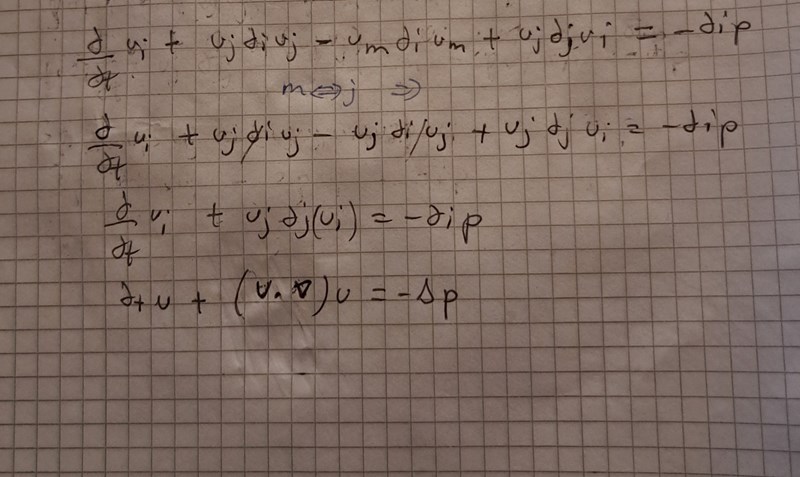 ∂/∂t u_i + u_j ∂_i u_j - u_m ∂_i u_m + u_j ∂_j u_i = -∂_i p
m⇔j ⇒
∂/∂t u_i + u_j ∂_i u_j - u_j ∂_i u_j + u_j ∂_j u_i = -∂_i p
∂/∂t u_i + u_j ∂_j(u_i) = -∂_i p
∂_t u + (u·∇)u = -∇p